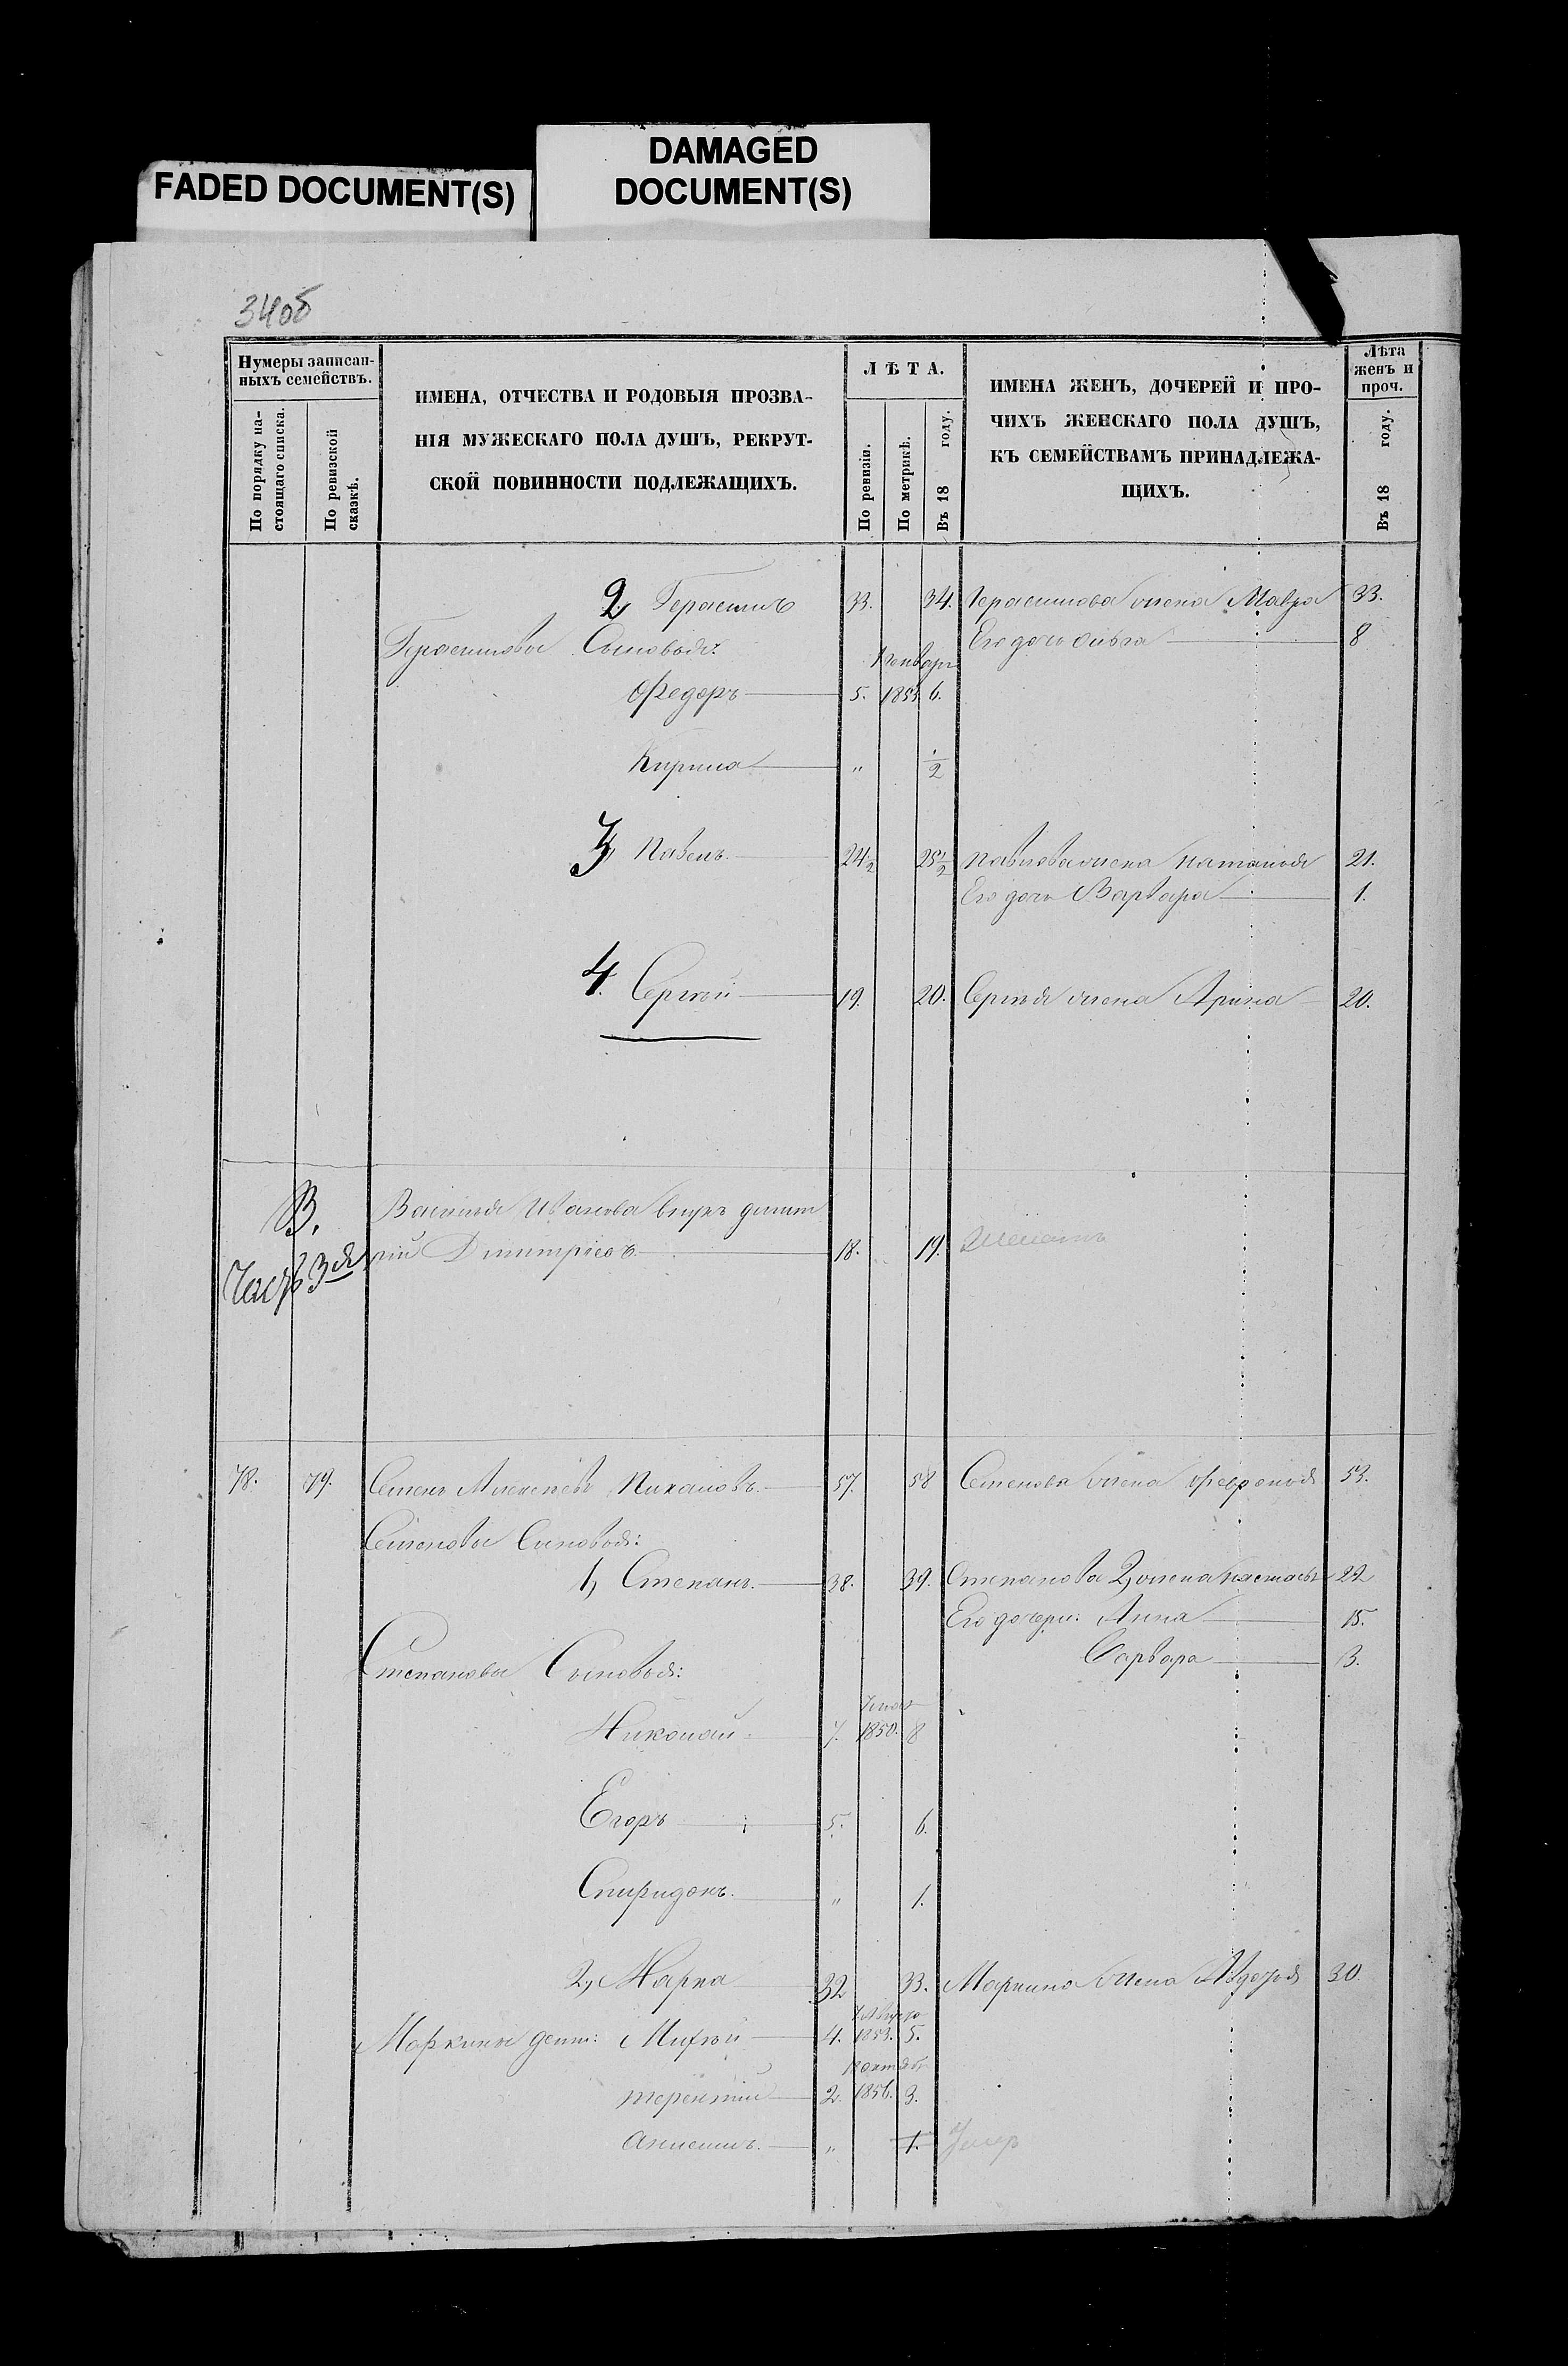 FADED DOCUMENT(S)
DAMAGED
DOCUMENT(S)
34об
Нумеры записан-
ныхъ семействъ.
По порядку на-
стоящаго списка.
По ревизской
сказкѣ.
ИМЕНА, ОТЧЕСТВА И РОДОВЫЯ ПРОЗВА-
НІЯ МУЖЕСКАГО ПОЛА ДУШЪ, РЕКРУТ-
СКОЙ ПОВИННОСТИ ПОДЛЕЖАЩИХЪ.
ЛѢТА.
По ревизіи.
По метрикѣ.
Въ 18 году.
ИМЕНА ЖЕНЪ, ДОЧЕРЕЙ И ПРО-
ЧИХЪ ЖЕНСКАГО ПОЛА ДУШЪ,
КЪ СЕМЕЙСТВАМЪ ПРИНАДЛЕЖА-
ЩИХЪ.
Лѣта
женъ и
проч.
Въ 18 году.
2, Герасимъ 33. 34. Герасимова жена Мавра 33.
Герасимовы Сыновья: Его дочь Ольга 8
Январь
Федоръ 5. 1853. 6.
Кирила " 1/2
3, Павелъ. 24 1/2 25 1/2 Павлова жена Наталья 21.
Его дочь Варвара 1.
4. Сергѣй 19. 20. Сергѣя жена Арина 20.
В. Василья Иванова внукъ Димит
Часть 3я рій Дмитріевъ 18. 19. Женатъ
78. 79. Семенъ Алексѣевъ 57. 58 Семенова жена Февронья 53.
Семеновы Сыновья:
1, Степанъ. 38. 39. Степанова 2, жена Настасья 22
Его дочери: Анна 15.
Степановы Сыновья: Варвара 3.
Николай 7. 1850. 8
Егоръ 5. 6.
Спиридонъ. " 1.
2, Марка 32 33. Маркина жена Авдотья 30.
Маркины дети: Михѣй 4. 1853. 5.
Октяб
Терентій 2. 1856. 3.
Анисимъ. " 1. Умер